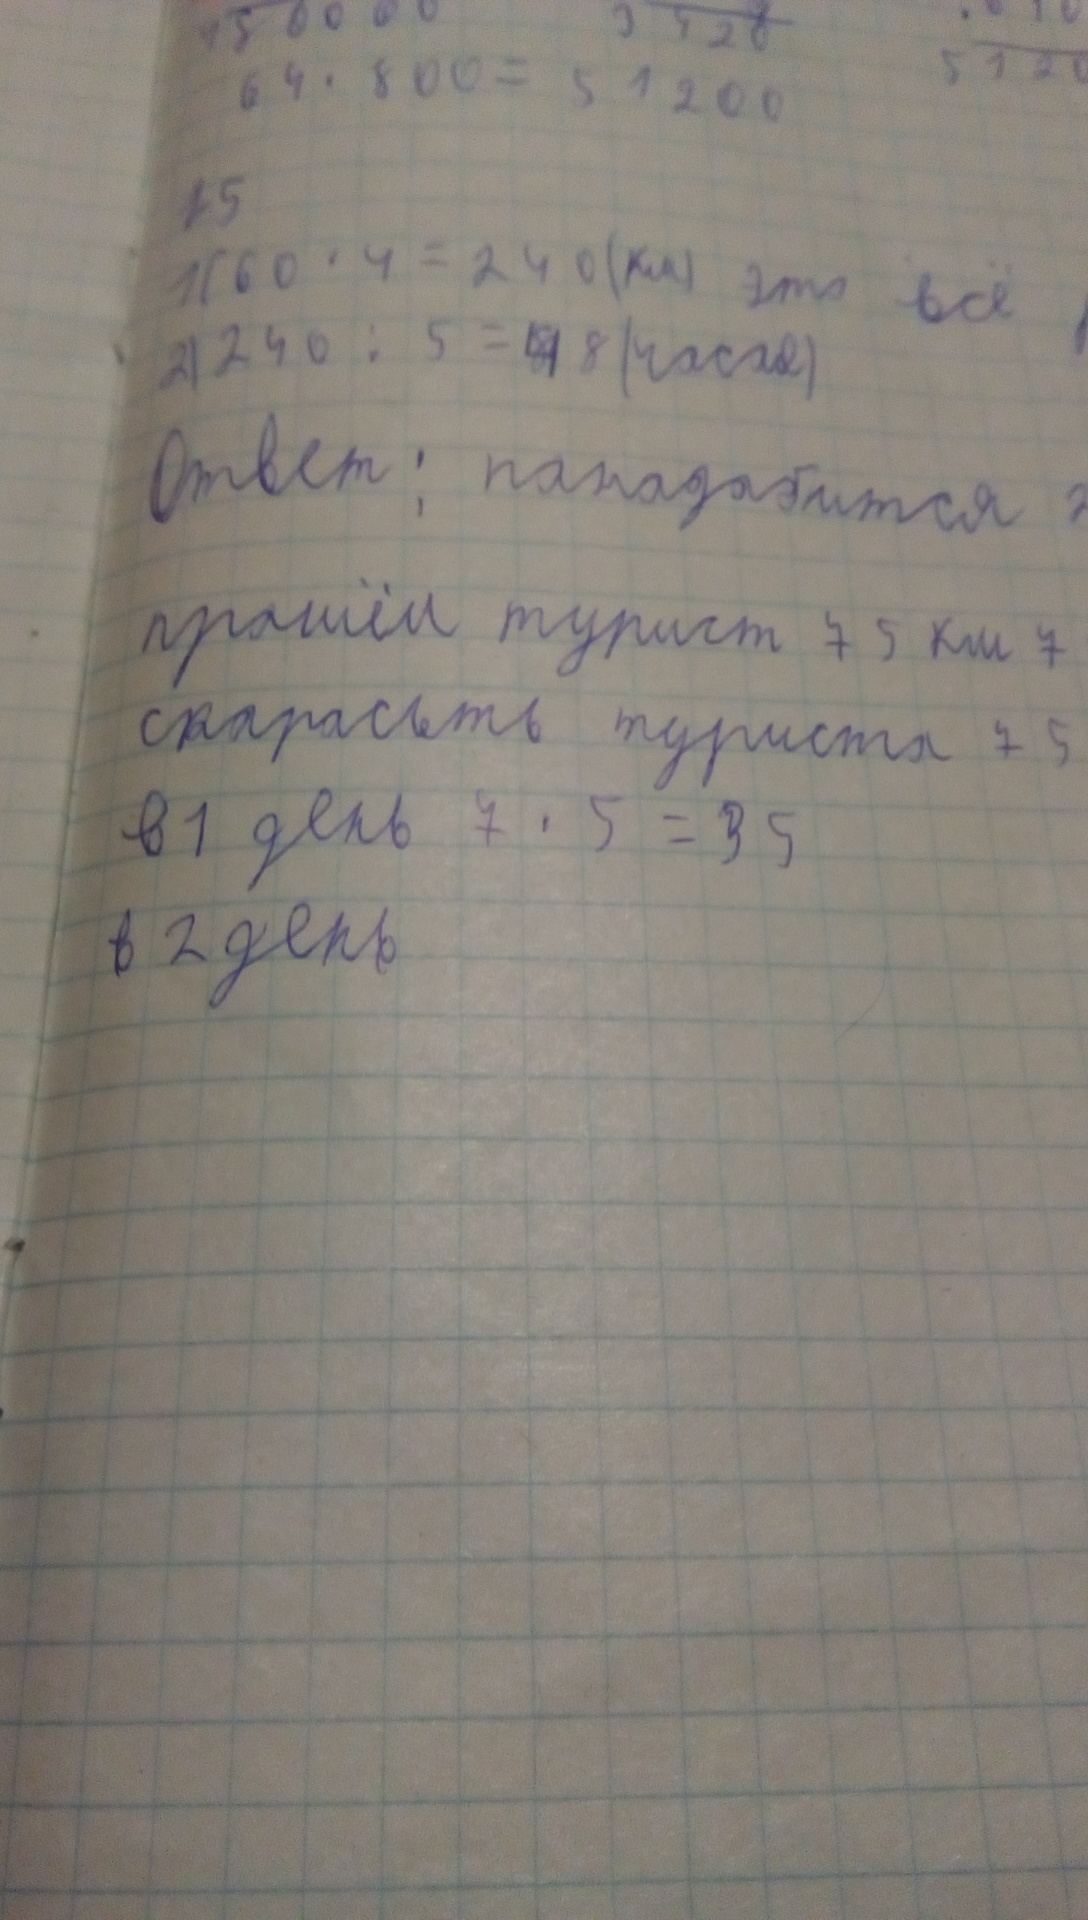 450000 3428
64 · 800 = 51200 5120
15
1) 60 · 4 = 240 (км) это всё
2) 240 : 5 = 48 (часов)
Ответ: панадабится
прошёл турист 75 км 7
скарасьть туриста 75
в 1 день 7 · 5 = 35
в 2 день